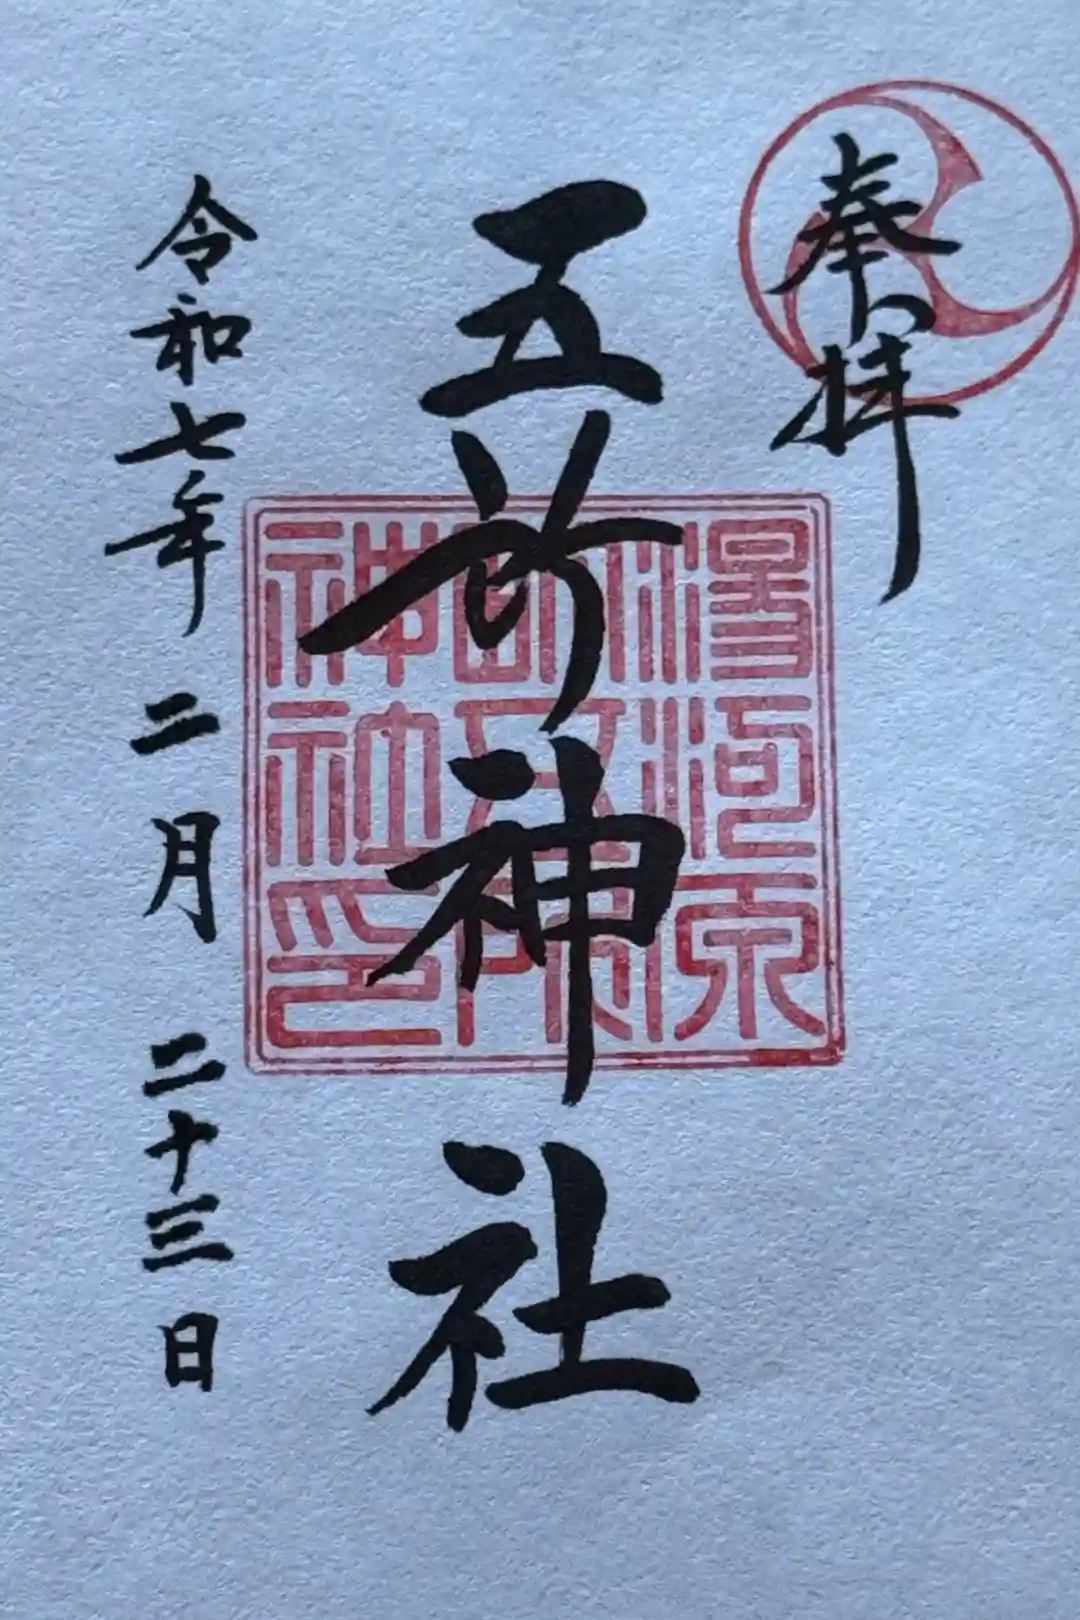 奉拝
五所神社
令和七年二月二十三日
湯河原
五所
神社印